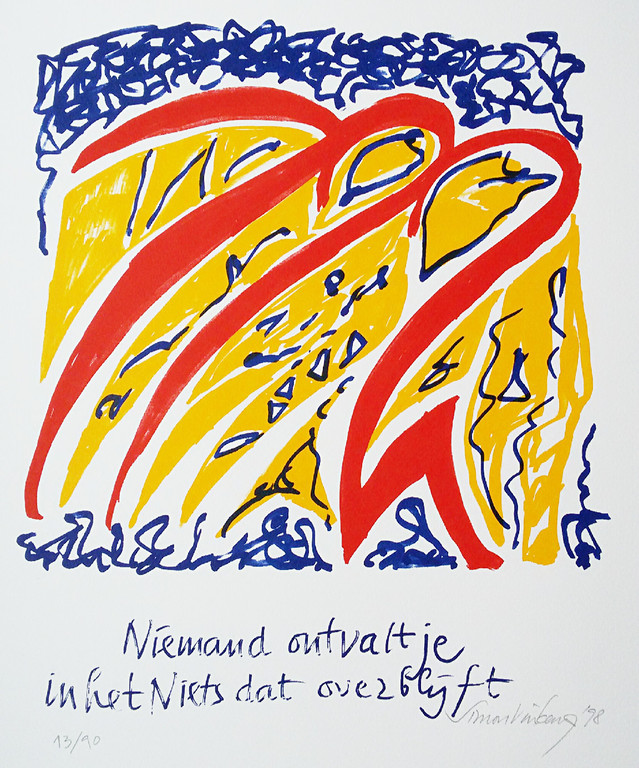 Niemand ontvalt je
in het Niets dat overblijft
Simon Vinkenoog '98
13/90